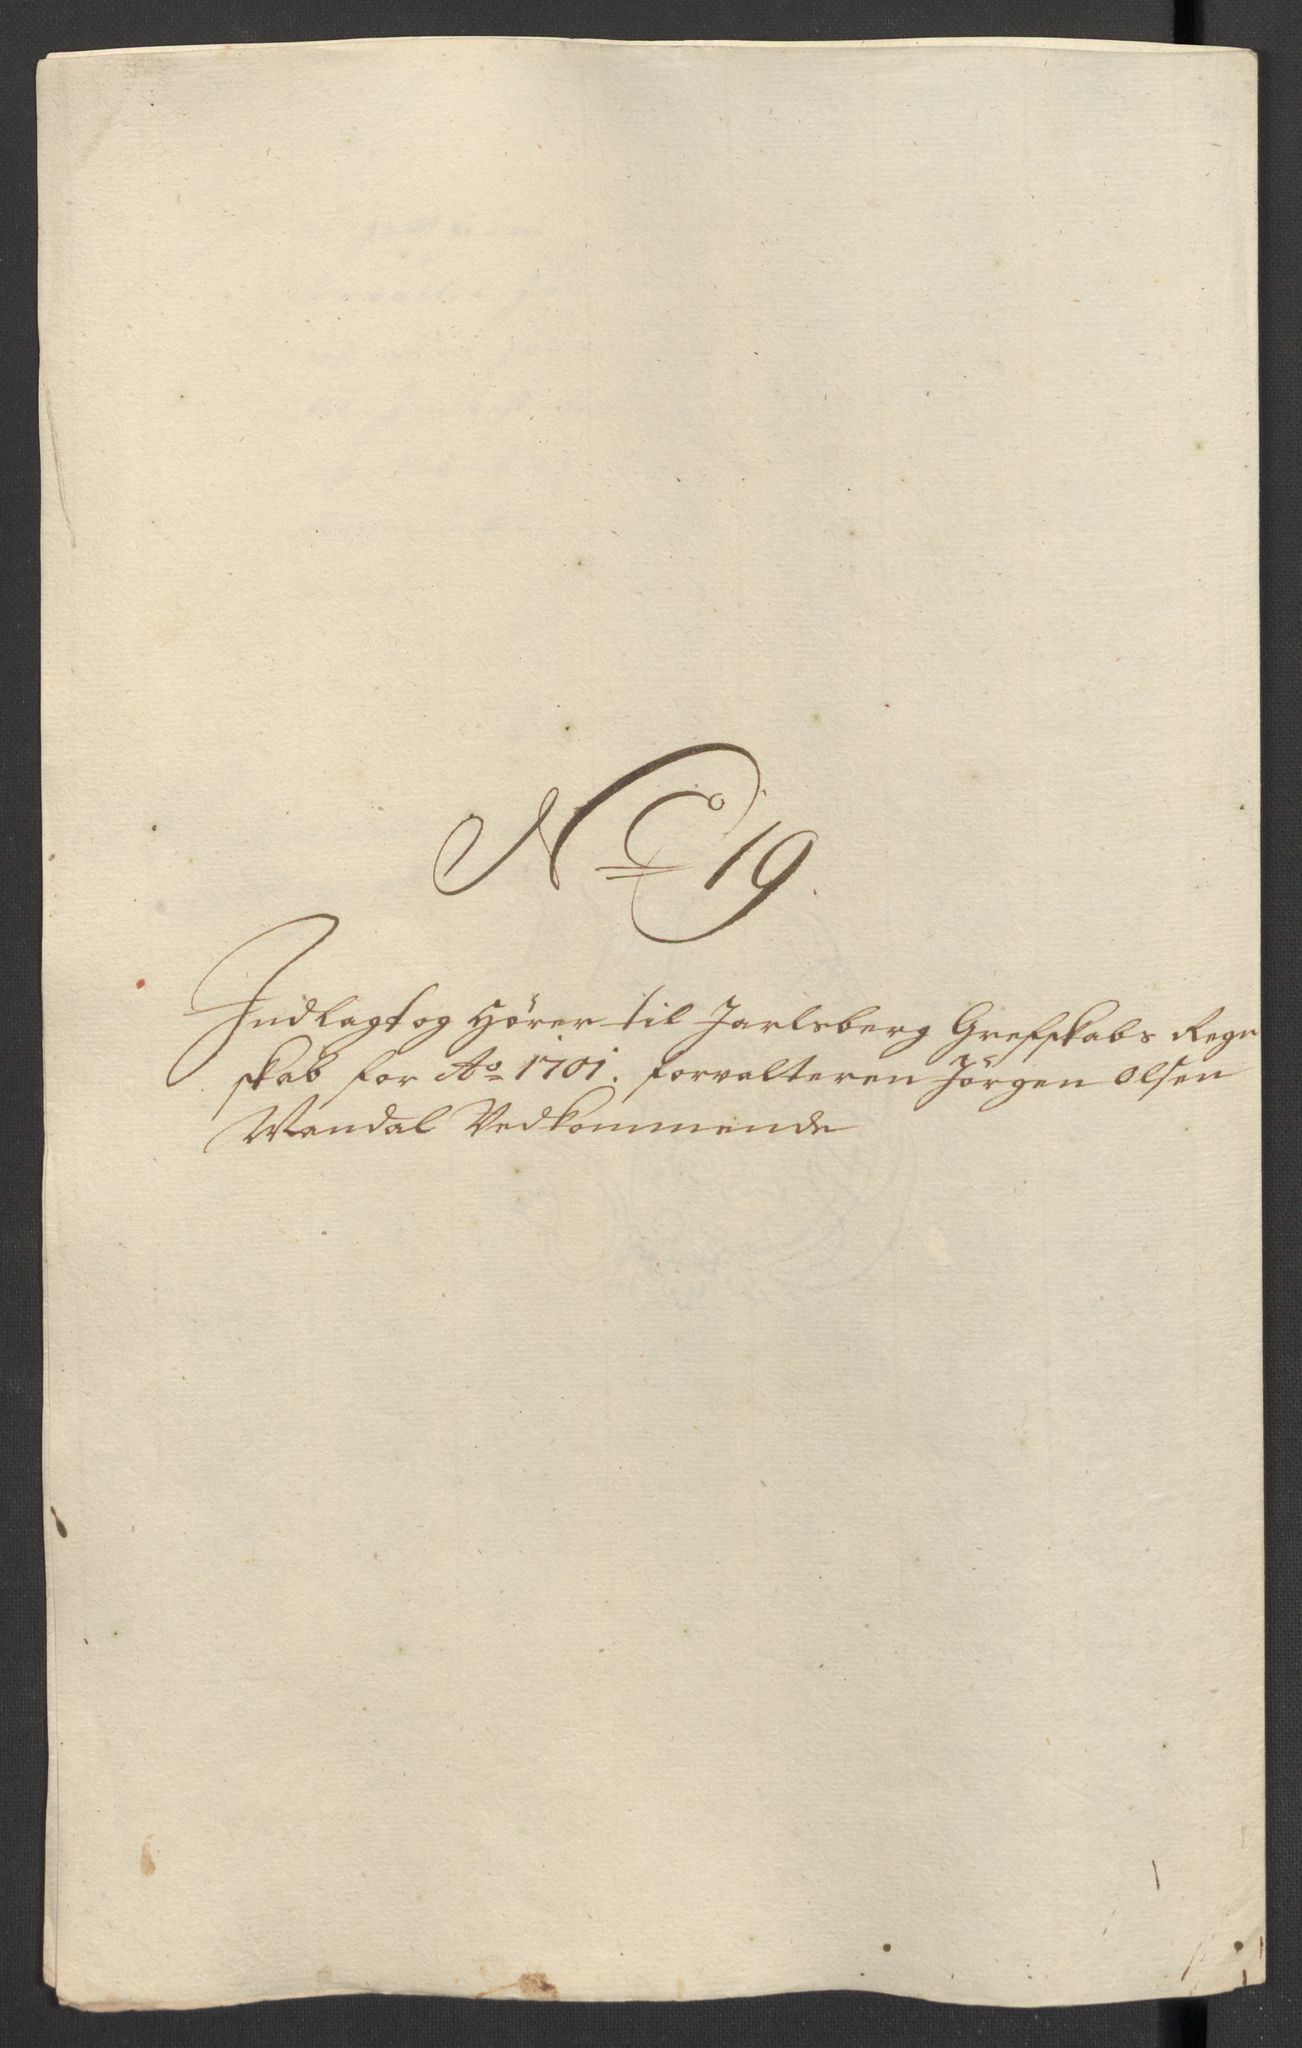 No 19.
Indlagt og Hörer til Jarlsberg Grefskabs Regn
skab for Ao 1701. forvalteren Jörgen Olsen
Wandal Vedkommende